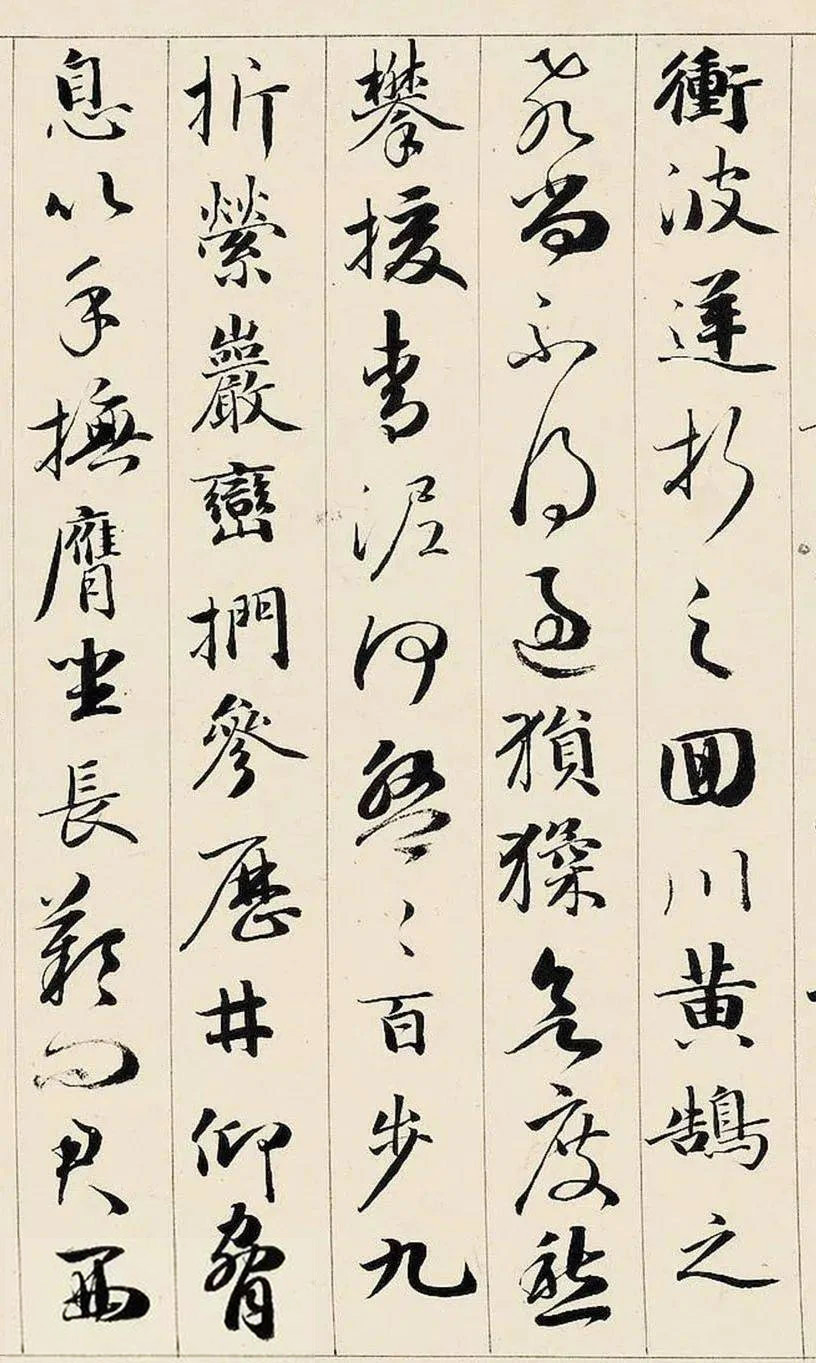 衝波逆折之回川黄鵠之
飛尚不得過猿猱欲度愁
攀援青泥何盤〻百步九
折縈巖巒捫參歷井仰脅
息以手撫膺坐長歎問君西